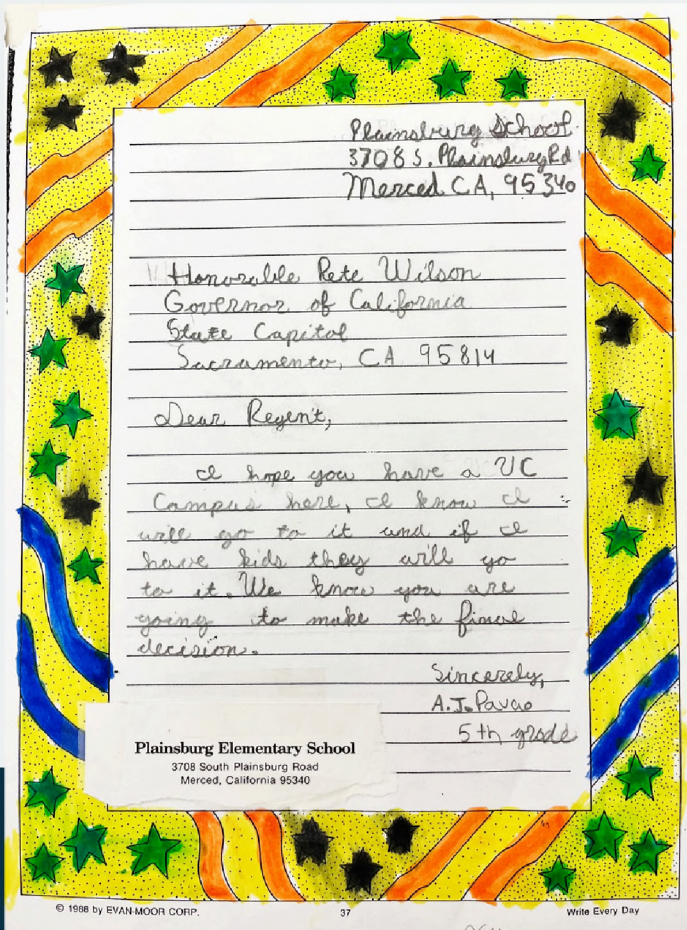 Plainsburg School
3708 S. Plainsburg Rd
Merced CA, 95340
Honorable Pete Wilson
Governor of California
State Capitol
Sacramento, CA 95814
Dear Regent,
I hope you have a UC
Campus here, I know I
will go to it and if I
have kids they will go
to it. We know you are
going to make the final
decision.
Sincerely,
A.J. Pavao
5th grade
Plainsburg Elementary School
3708 South Plainsburg Road
Merced, California 95340
© 1988 by EVAN-MOOR CORP.
37
Write Every Day